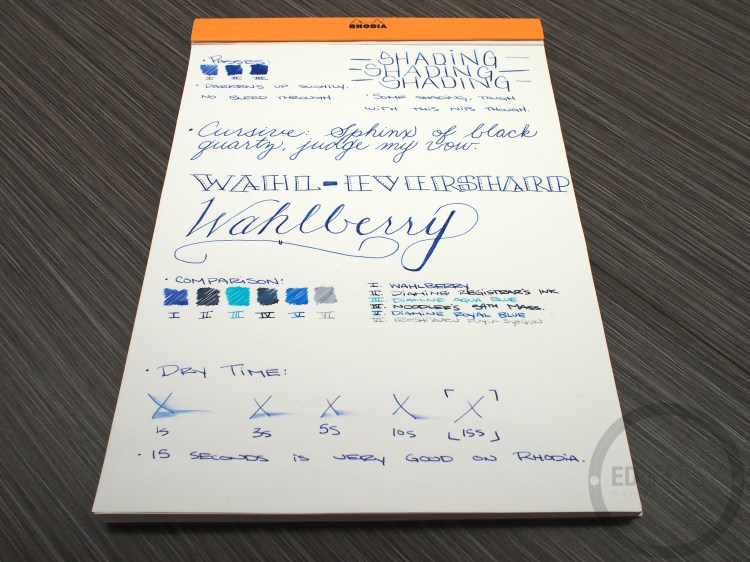 RHODIA
• PASSES:
I II III
• DARKENS UP SLIGHTLY.
NO BLEED THROUGH.
SHADING
SHADING
SHADING
• SOME SHADING, TOUGH
WITH THIS NIB THOUGH.
• Cursive: Sphinx of black
quartz, judge my vow.
WAHL-EVERSHARP
Wahlberry
• COMPARISON:
I II III IV V VI
I. WAHLBERRY
II. DIAMINE REGISTRAR'S INK
III. DIAMINE AQUA BLUE
IV. NOODLER'S 54TH MASS.
V. DIAMINE ROYAL BLUE
VI. IROSHIZUKU FUYU-SYOGUN
• DRY TIME:
X X X X X
1s 3s 5s 10s 15s
• 15 SECONDS IS VERY GOOD ON RHODIA.